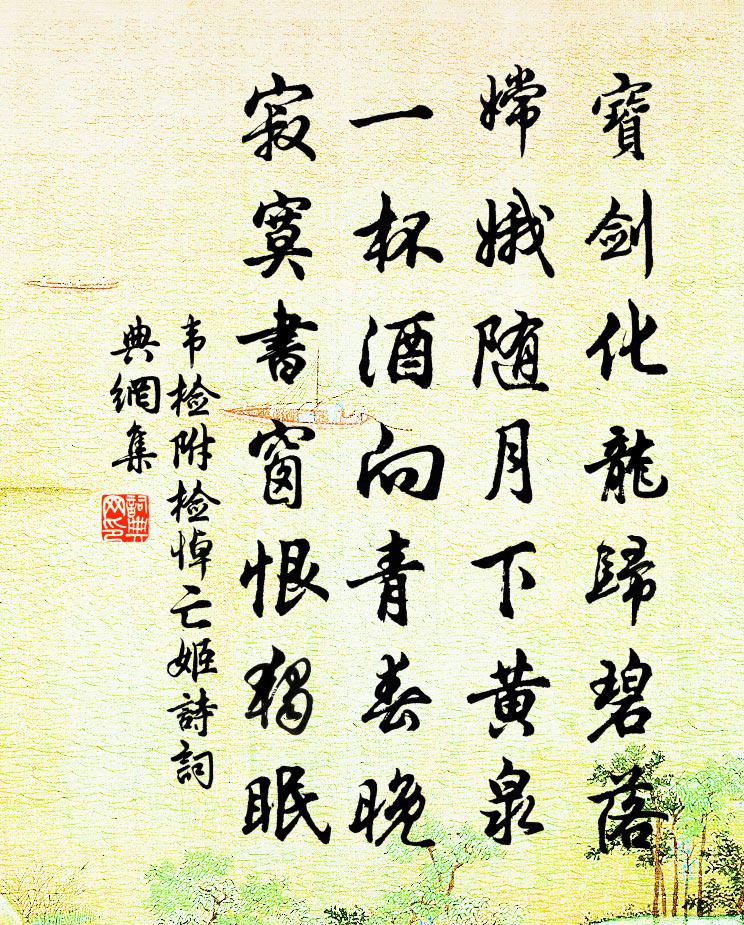 寶劍化龍歸碧落
嫦娥随月下黄泉
一杯酒向青春晚
寂寞書窗恨獨眠
韦检附检悼亡姬詩詞
典網集
詞典
网印